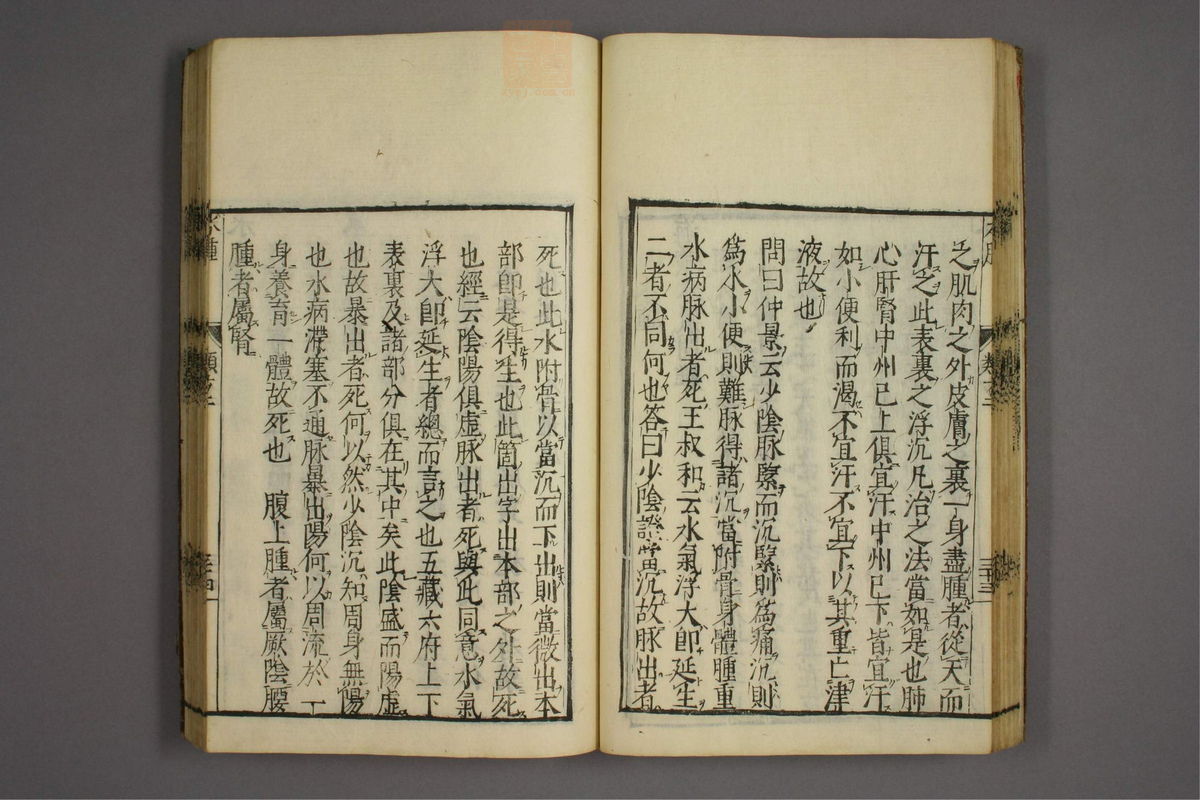 之肌肉之外皮膚之裏一身盡腫者從天而
汗之此表裏之浮沉凡治之法當如是也肺
心肝腎中州已上俱宜汗中州已下皆宜汗
如小便利而渴不宜汗不宜下以其重亡津
液故也
問曰仲景云少陰脉緊而沉緊則爲痛沉則
爲水小便則難脉得諸沉當附骨身體腫重
水病脉出者死王叔和云水氣浮大卽延生
二者不同何也答曰少陰證當沉故脉出者
死也此水附骨以當沉而下出則當微出本
部卽是得生也此箇出字出本部之外故死
也經云陰陽俱虛脉出者死與此同意水氣
浮大卽延生者總而言之也五藏六府上下
表裏及諸部分俱在其中矣此陰盛而陽虛
也故暴出者死何以然少陰沉知周身無陽
也水病滯塞不通脉暴出陽何以周流於一
身養育一體故死也 腹上腫者屬厥陰腰
腫者屬腎
水腫
類之二
三十四
類之二
三十三